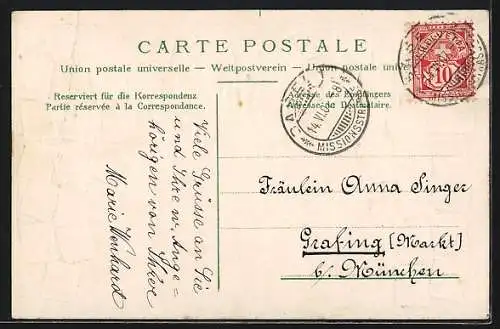 CARTE POSTALE
Union postale universelle — Weltpostverein — Unione postale universale
Reserviert für die Korrespondenz
Partie réservée à la Correspondance.
Adresse des Empfängers
Adresse du Destinataire.
14.VI.
MISSIONSSTR.
HELVETIA
10
Viele Grüsse an Sie
und Ihre w. Ange-
hörigen von Ihrer
Marie
Fräulein Anna Singer
Grafing (Markt)
b/ München